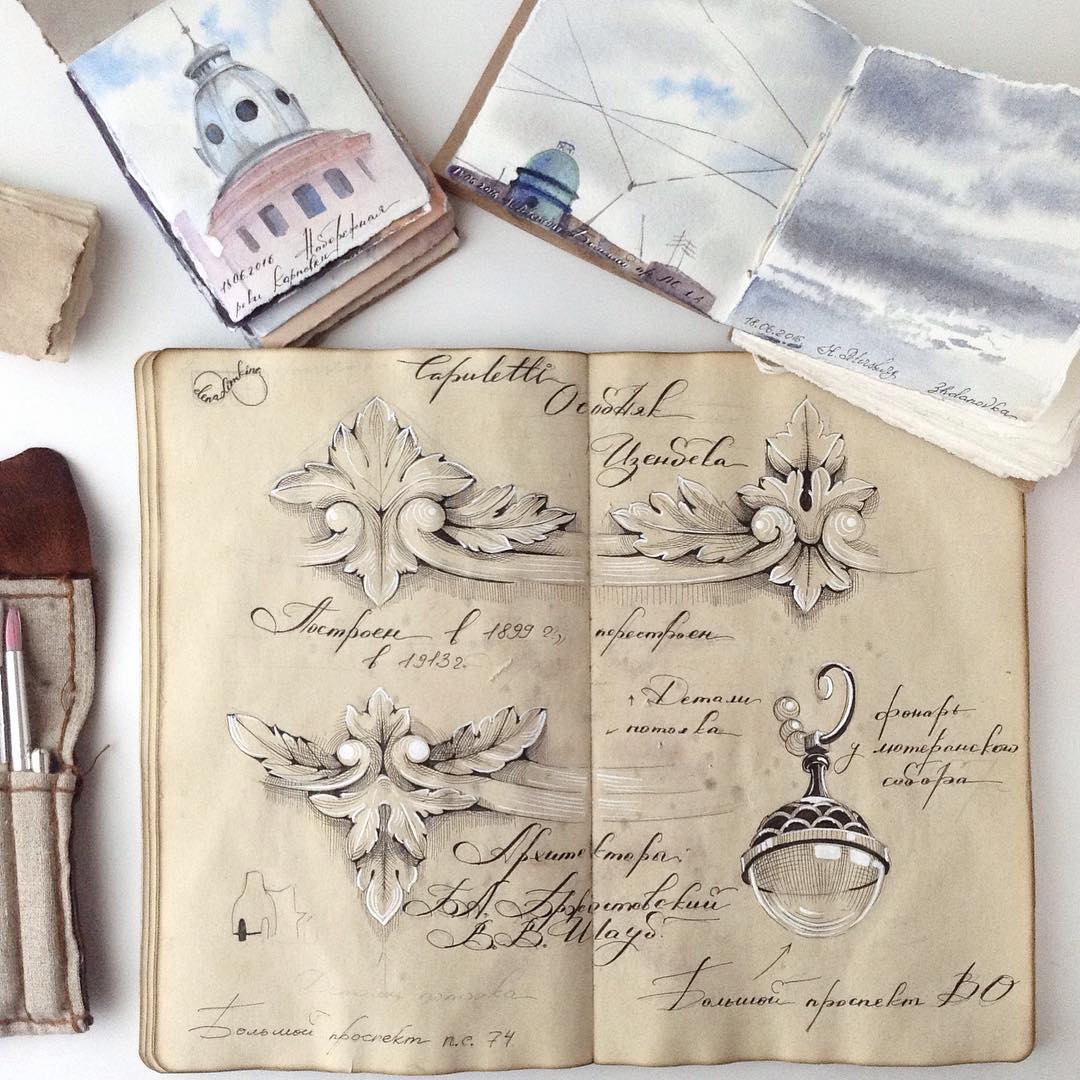 18.06.2016 Набережная
реки Карповки
18.06.2016
Большой пр. ПС
18.06.2016
Zhdanovka
Elena Limkina
Capuletti
Особняк
Изенбека
Построен в 1899 г., перестроен
в 1913 г.
↑ Детали
потолка
фонарь
у лютеранского
собора
Архитекторы:
В.В. Шауб
Детали потолка
Большой проспект п.с. 74
Большой проспект ВО